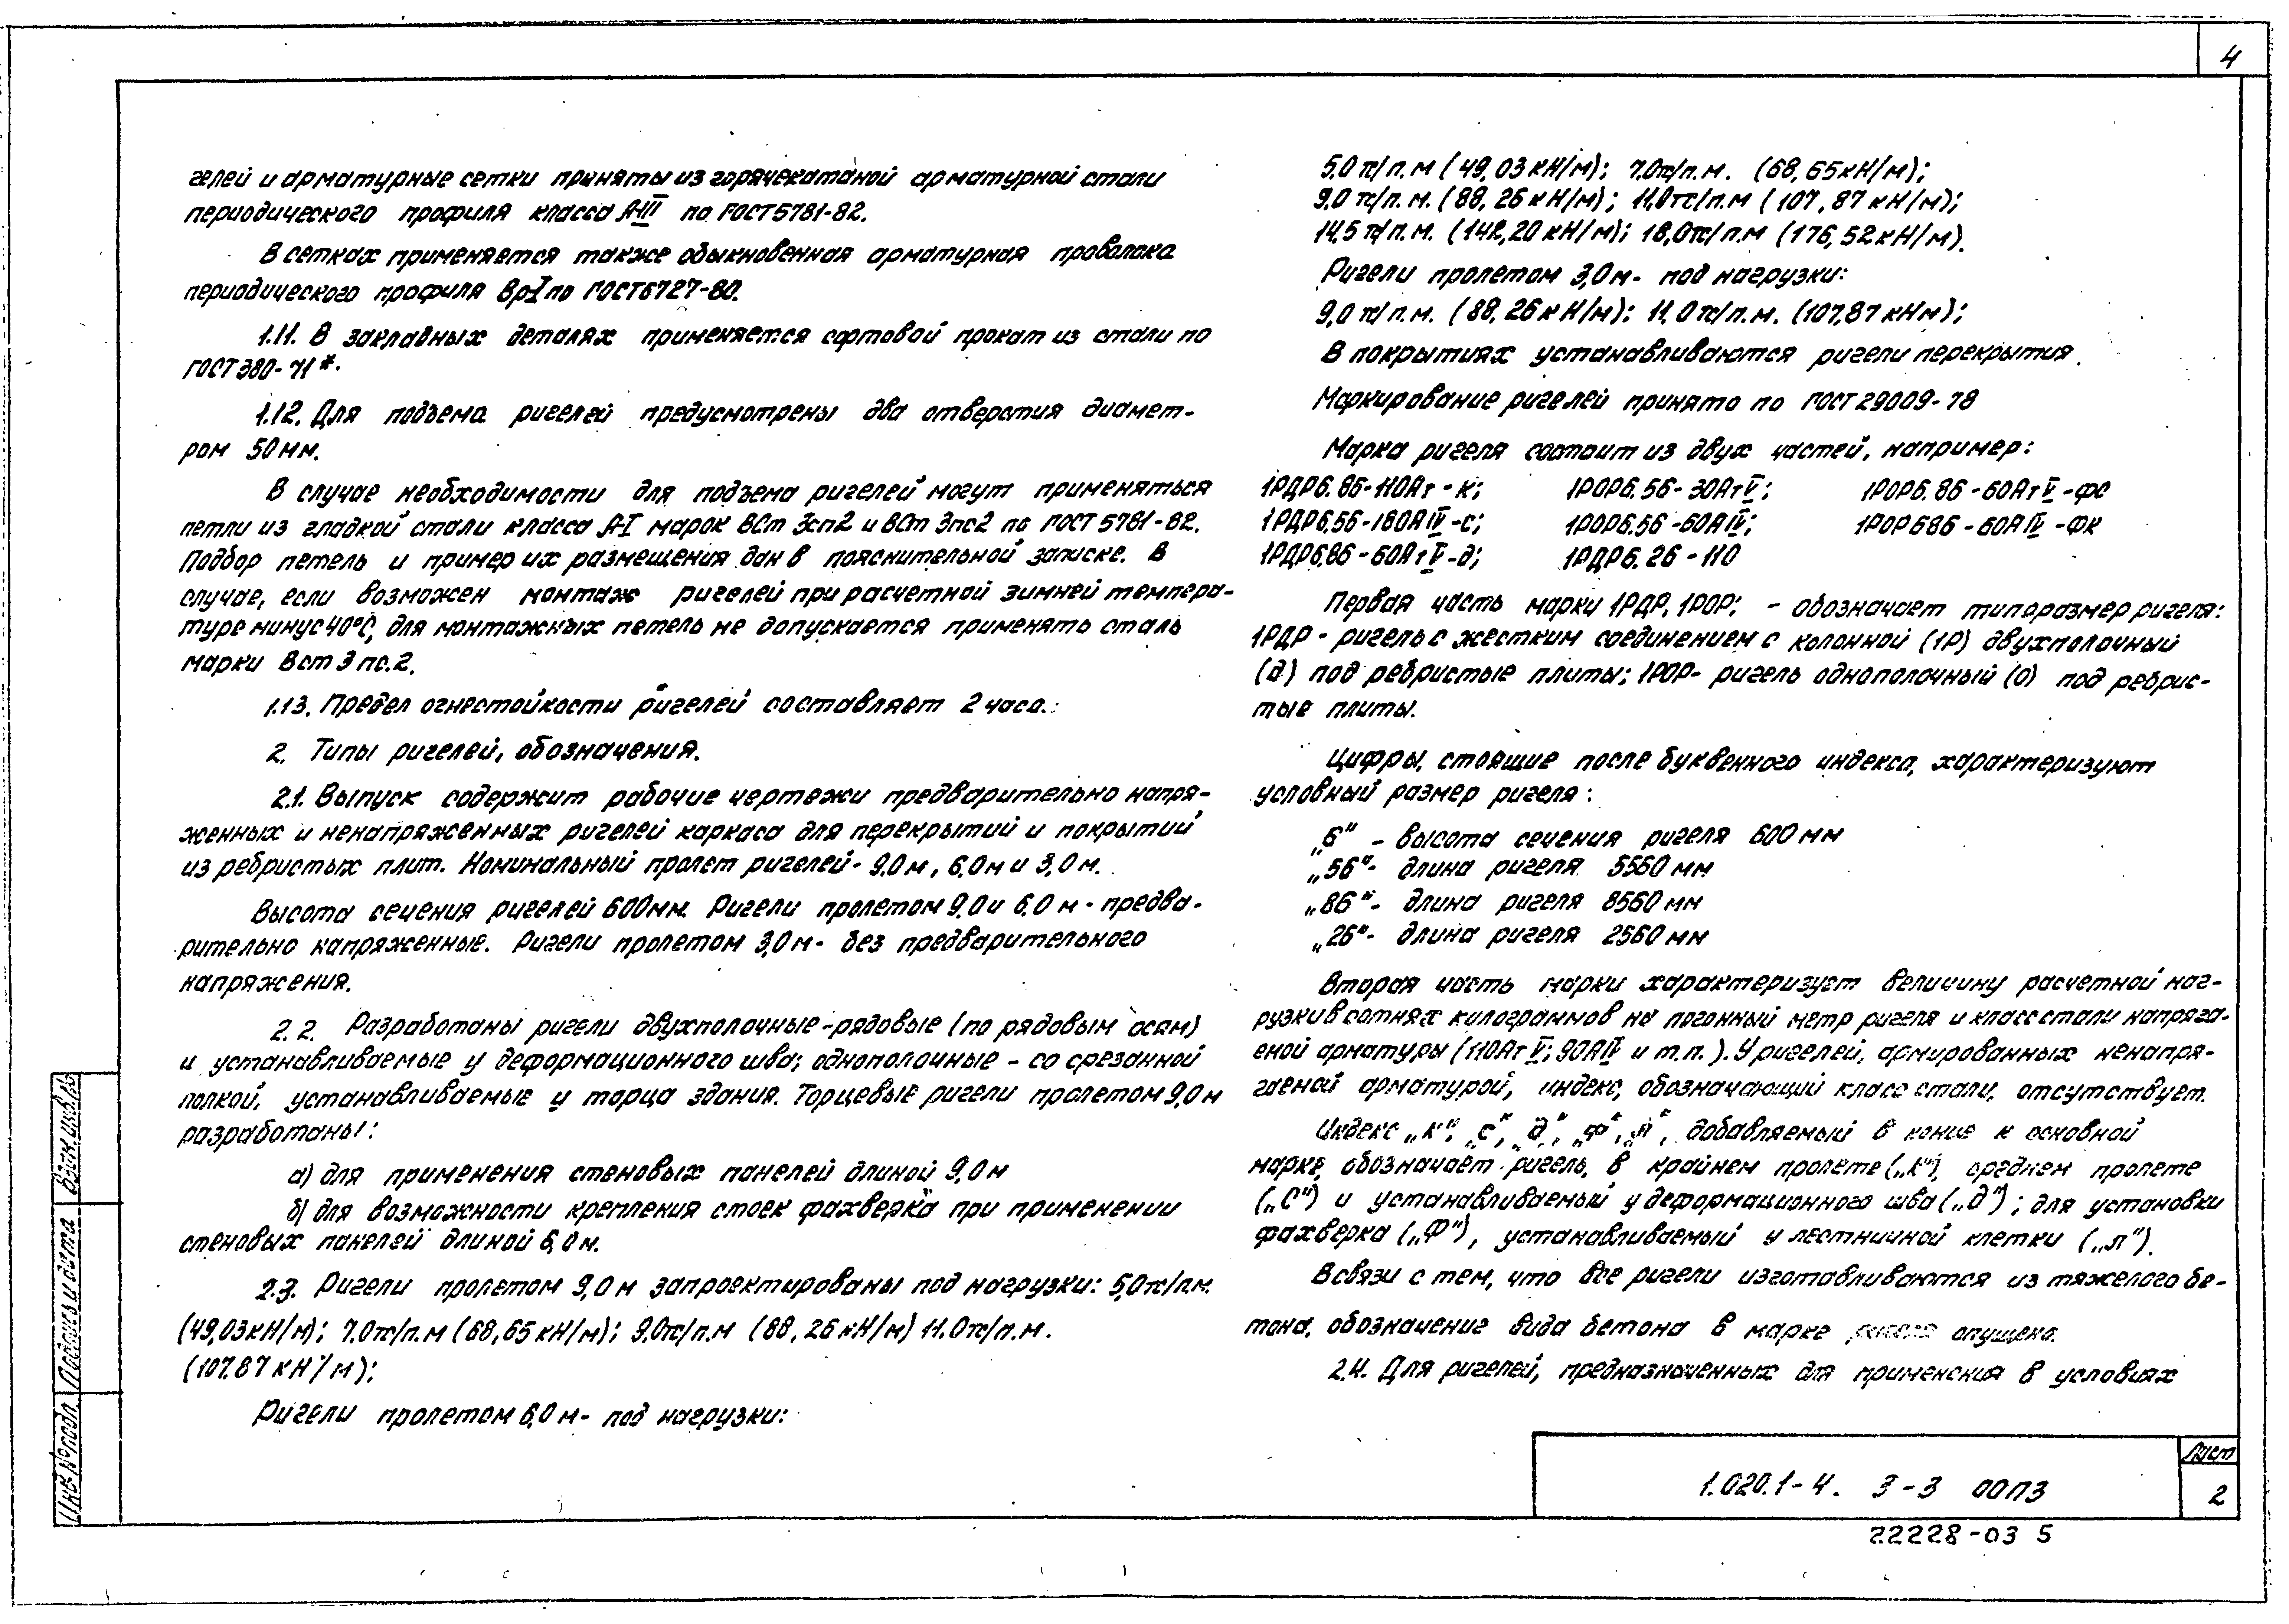 4
гелей и арматурные сетки приняты из горячекатаной арматурной стали
периодического профиля класса А-III по ГОСТ 5781-82.
В сетках применяется также обыкновенная арматурная проволока
периодического профиля Вр-I по ГОСТ 6727-80.
1.11. В закладных деталях применяется сортовой прокат из стали по
ГОСТ 380-71*.
1.12. Для подъема ригелей предусмотрены два отверстия диамет-
ром 50 мм.
В случае необходимости для подъема ригелей могут применяться
петли из гладкой стали класса А-I марок ВСт 3сп2 и ВСт 3пс2 по ГОСТ 5781-82.
Подбор петель и пример их размещения дан в пояснительной записке. В
случае, если возможен монтаж ригелей при расчетной зимней темпера-
туре минус 40°С, для монтажных петель не допускается применять сталь
марки Вст 3 пс.2.
1.13. Предел огнестойкости ригелей составляет 2 часа.
2. Типы ригелей, обозначения.
2.1. Выпуск содержит рабочие чертежи предварительно напря-
женных и ненапряженных ригелей каркаса для перекрытий и покрытий
из ребристых плит. Номинальный пролет ригелей - 9.0 м, 6,0 м и 3,0 м.
Высота сечения ригелей 600 мм. Ригели пролетом 9.0 и 6.0 м - предва-
рительно напряженные. Ригели пролетом 3,0 м - без предварительного
напряжения.
2.2. Разработаны ригели двухполочные - рядовые (по рядовым осям)
и устанавливаемые у деформационного шва; однополочные - со срезанной
полкой, устанавливаемые у торца здания. Торцевые ригели пролетом 9,0 м
разработаны:
а) для применения стеновых панелей длиной 9,0 м
б) для возможности крепления стоек фахверка при применении
стеновых панелей длиной 6,0 м.
2.3. Ригели пролетом 9,0 м запроектированы под нагрузки: 5,0 тс/п.м.
(49,03 кН/м); 7.0 тс/п.м (68,65 кН/м); 9.0 тс/п.м (88,26 кН/м) 11.0 тс/п.м.
(107.87 кН/м);
Ригели пролетом 6,0 м - под нагрузки:
5.0 тс/п.м (49,03 кН/м); 7.0 тс/п.м. (68,65 кН/м);
9,0 тс/п.м. (88,26 кН/м); 11,0 тс/п.м (107,87 кН/м);
14,5 тс/п.м. (142,20 кН/м); 18,0 тс/п.м (176,52 кН/м).
Ригели пролетом 3,0 м - под нагрузки:
9,0 тс/п.м. (88,26 кН/м); 11,0 тс/п.м. (107,87 кНм);
В покрытиях устанавливаются ригели перекрытия.
Маркирование ригелей принято по ГОСТ 29009-78
Марка ригеля состоит из двух частей, например:
1РДР6.86-110Ат-к; 1РОР6.56-30АтV; 1РОР6.86-60АтV-фс
1РДР6.56-180АIV-с; 1РОР6.56-60АIV; 1РОР686-60АIV-Фк
1РДР6.86-60АтV-д; 1РДР6.26-110
Первая часть марки 1РДР, 1РОР; - обозначает типоразмер ригеля:
1РДР - ригель с жестким соединением с колонной (1Р) двухполочный
(д) под ребристые плиты; 1РОР - ригель однополочный (о) под ребрис-
тые плиты.
Цифры, стоящие после буквенного индекса, характеризуют
условный размер ригеля:
„6" - высота сечения ригеля 600 мм
„56" - длина ригеля 5560 мм
„86" - длина ригеля 8560 мм
„26" - длина ригеля 2560 мм
Вторая часть марки характеризует величину расчетной наг-
рузки в сотнях килограммов на погонный метр ригеля и класс стали напряга-
емой арматуры (110АтV; 90АIV и т.п.). У ригелей, армированных ненапря-
гаемой арматурой, индекс, обозначающий класс стали, отсутствует.
Индекс „к", „с", „д", „ф", „л", добавляемый в конце к основной
марке, обозначает ригель, в крайнем пролете („к"), среднем пролете
(„С") и устанавливаемый у деформационного шва („д"); для установки
фахверка („Ф"), устанавливаемый у лестничной клетки („л").
В связи с тем, что все ригели изготавливаются из тяжелого бе-
тона, обозначение вида бетона в марке опущено.
2.4. Для ригелей, предназначенных для применения в условиях
1.020.1-4. 3-3 00ПЗ
Лист
2
22228-03 5
Инв № подл.
Подпись и дата
Взам. инв. №